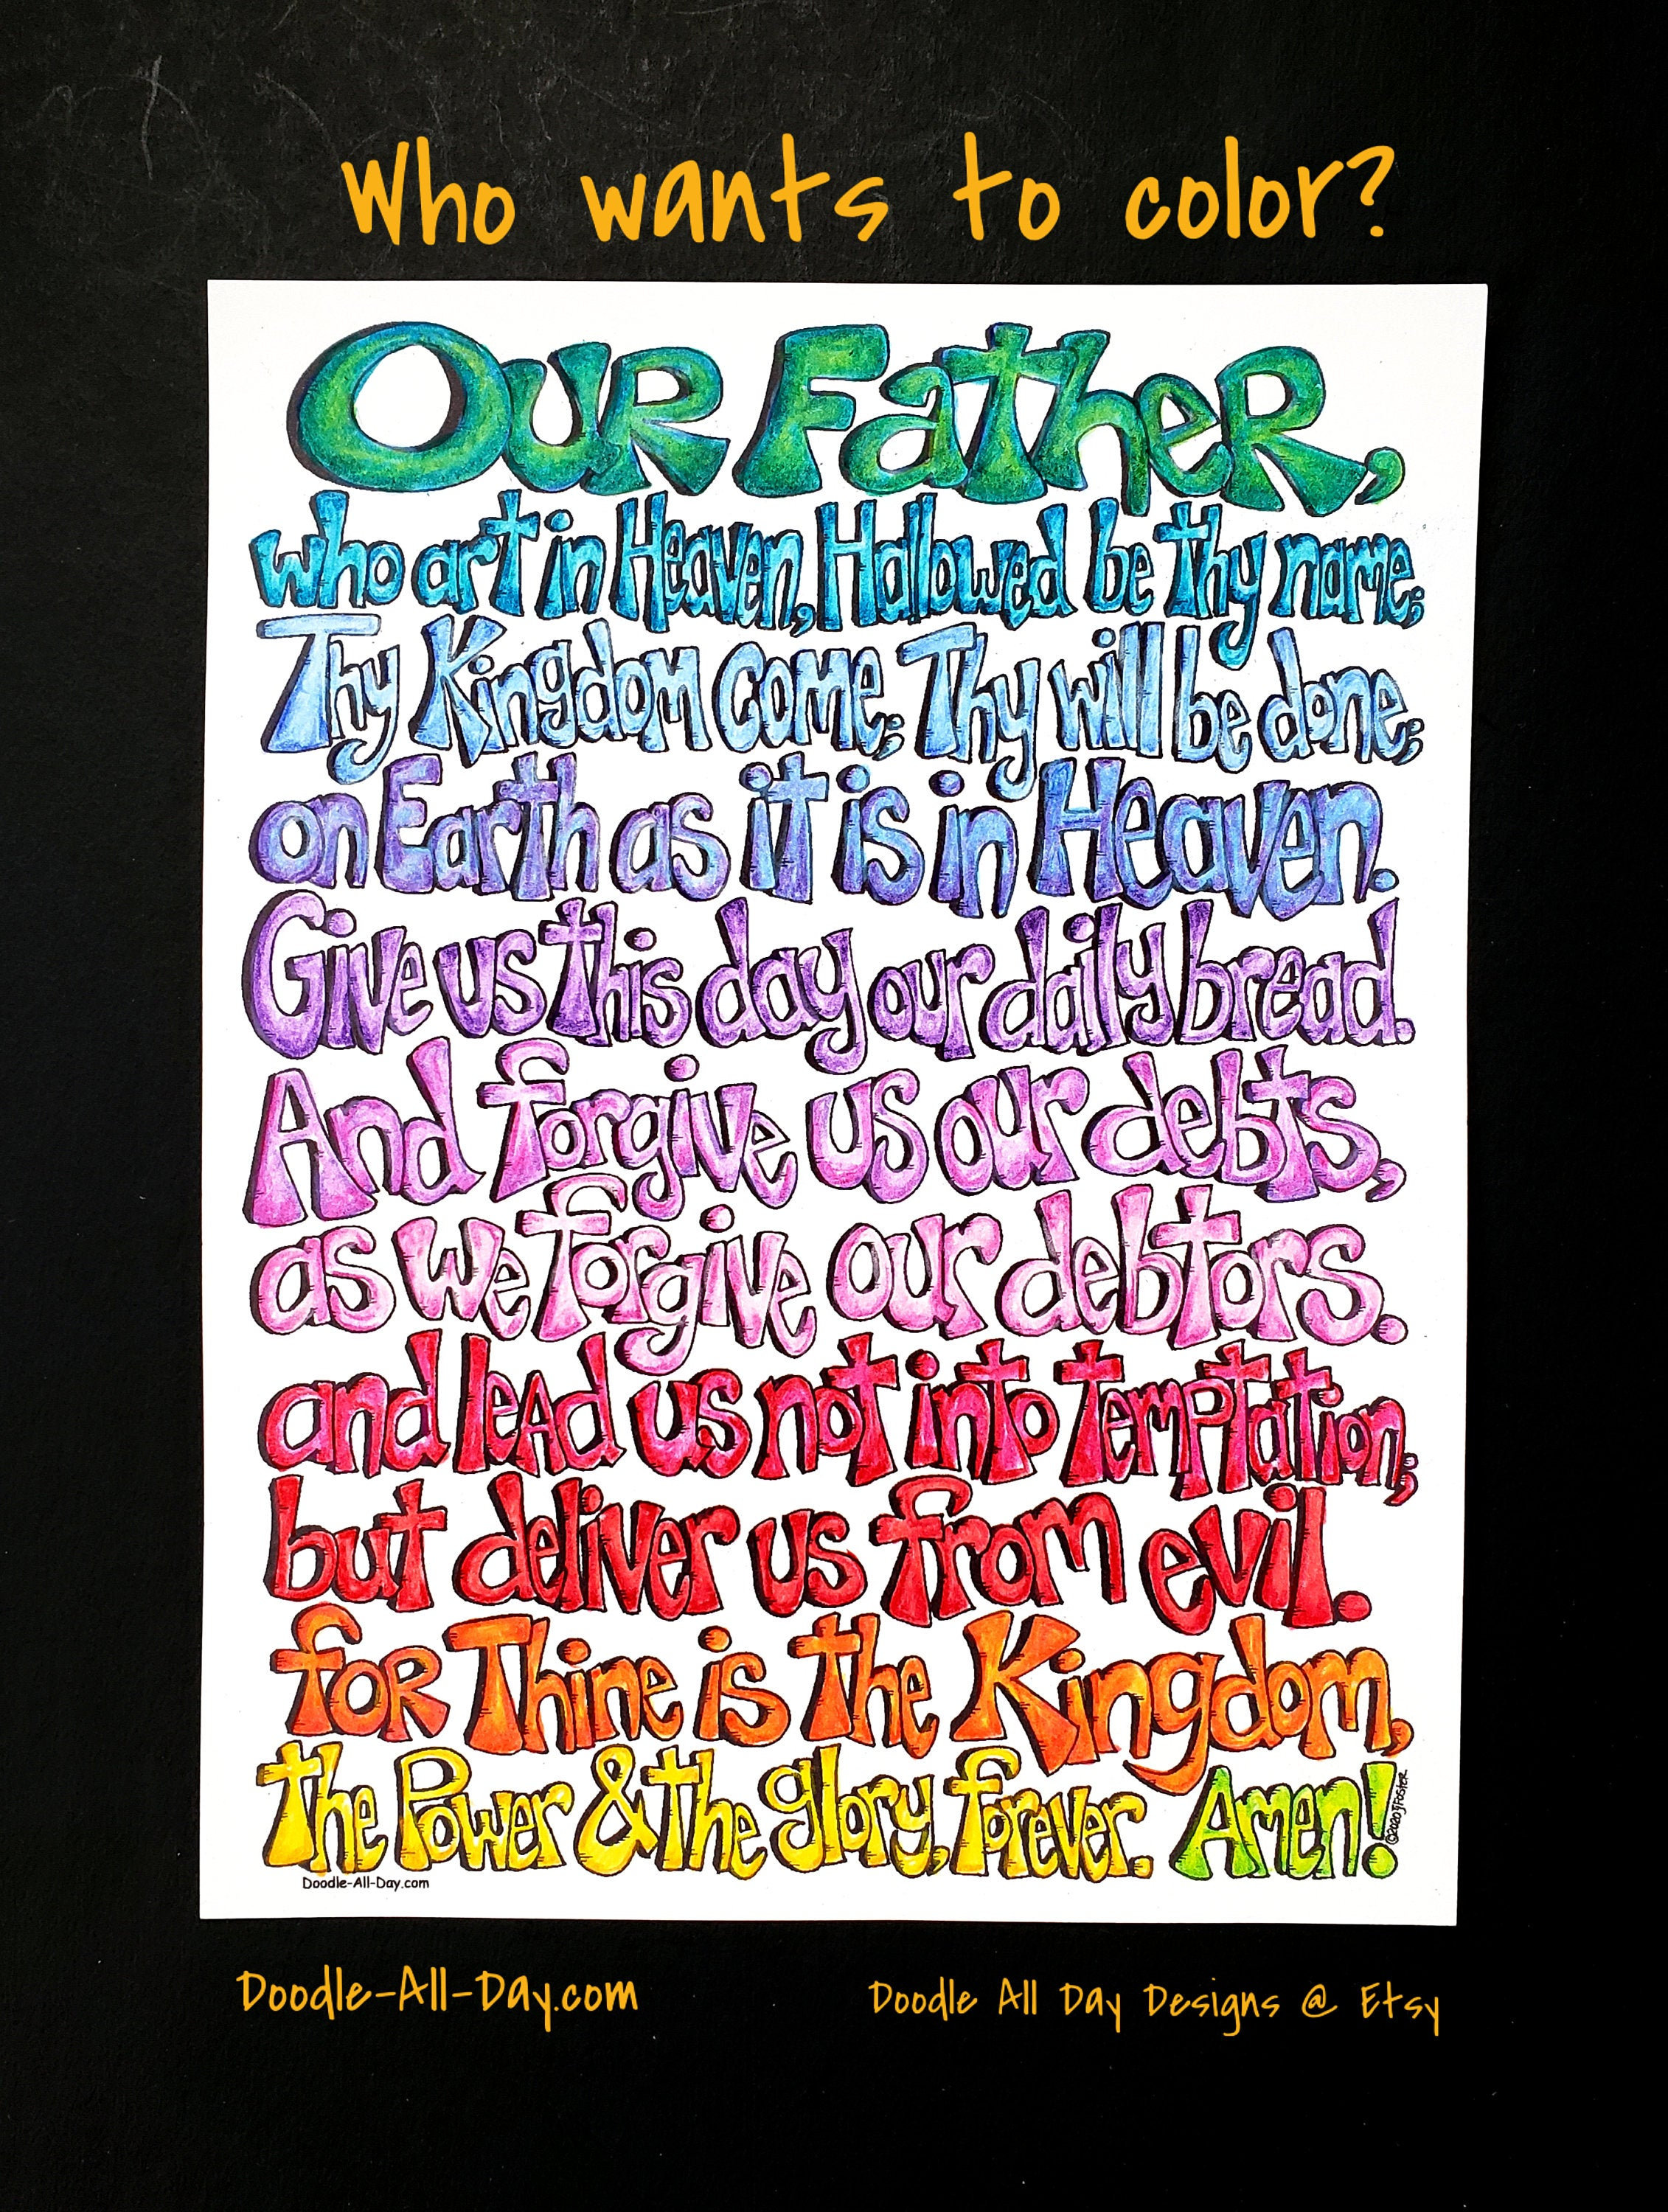 Who wants to color?
Our Father,
who art in Heaven, Hallowed be thy name;
Thy Kingdom come; Thy will be done;
on Earth as it is in Heaven.
Give us this day our daily bread.
And forgive us our debts,
as we forgive our debtors.
and lead us not into temptation;
but deliver us from evil.
for Thine is the Kingdom,
the Power & the glory, forever. Amen!
©2020 JFoster
Doodle-All-Day.com
Doodle-All-Day.com
Doodle All Day Designs @ Etsy